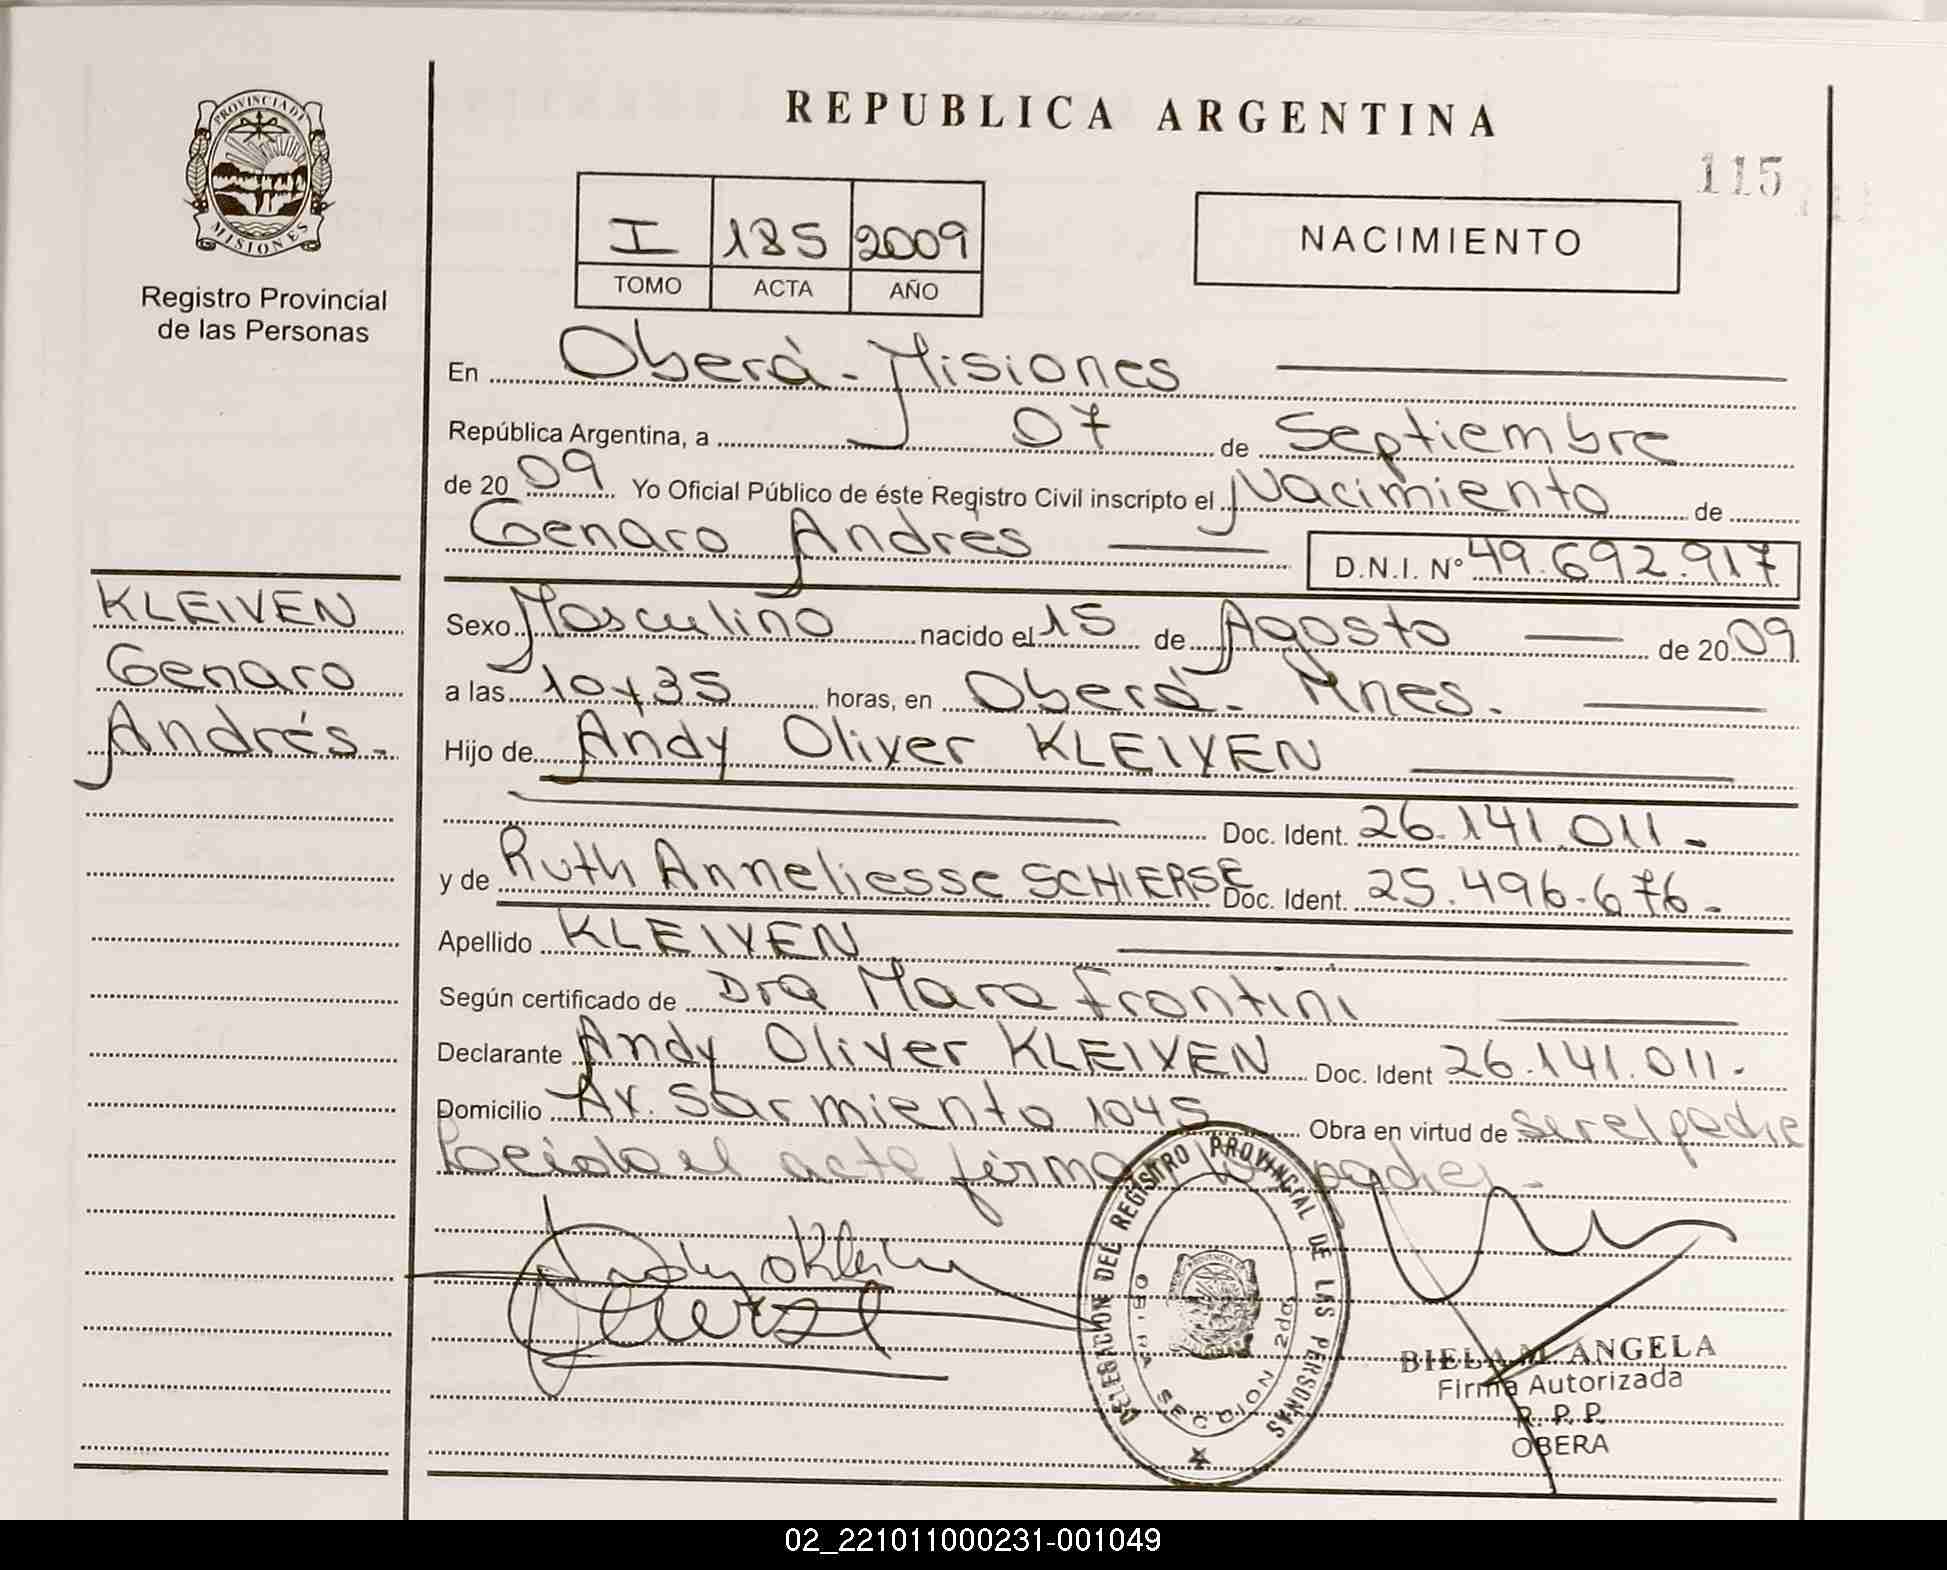 REPUBLICA ARGENTINA
115
PROVINCIA DE
MISIONES
Registro Provincial
de las Personas
I 185 2009
TOMO ACTA AÑO
NACIMIENTO
En Oberá - Misiones
República Argentina, a 07 de Septiembre
de 2009 Yo Oficial Público de éste Registro Civil inscripto el Nacimiento de
Genaro Andrés D.N.I. Nº 49.692.917
KLEIVEN
Genaro
Andrés.-
Sexo Masculino nacido el 15 de Agosto de 2009
a las 10 y 35 horas, en Oberá - Mnes.
Hijo de Andy Oliver KLEIVEN
Doc. Ident. 26.141.011-
y de Ruth Anneliesse SCHIERSE Doc. Ident. 25.496.676-
Apellido KLEIVEN
Según certificado de Dra Mara Frontini
Declarante Andy Oliver KLEIVEN Doc. Ident 26.141.011-
Domicilio Av. Sarmiento 1045 Obra en virtud de ser el padre
Leida el acta firman los padres.-
DELEGACION DEL REGISTRO PROVINCIAL DE LAS PERSONAS
OBERA SECCION 2da
BIELA M. ANGELA
Firma Autorizada
R. P. P.
OBERA
02_221011000231-001049